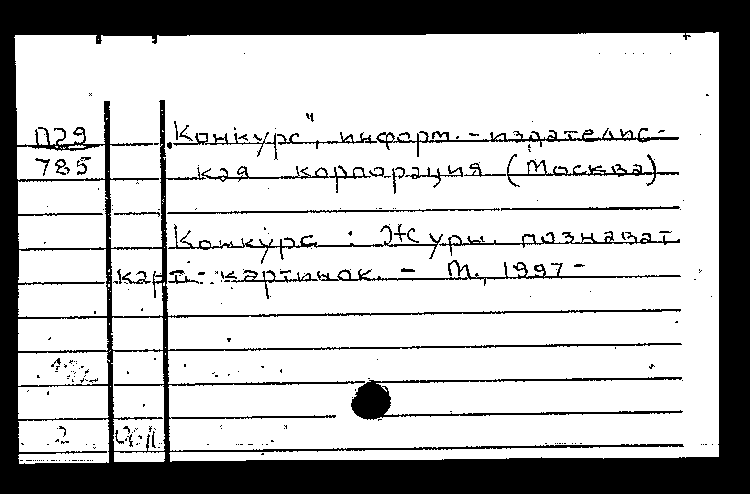 П29
785
„Конкурс", информ.-издательс-
кая корпорация (Москва)
Конкурс : Журн. познават.
карт.-картинок. - М., 1997-
2